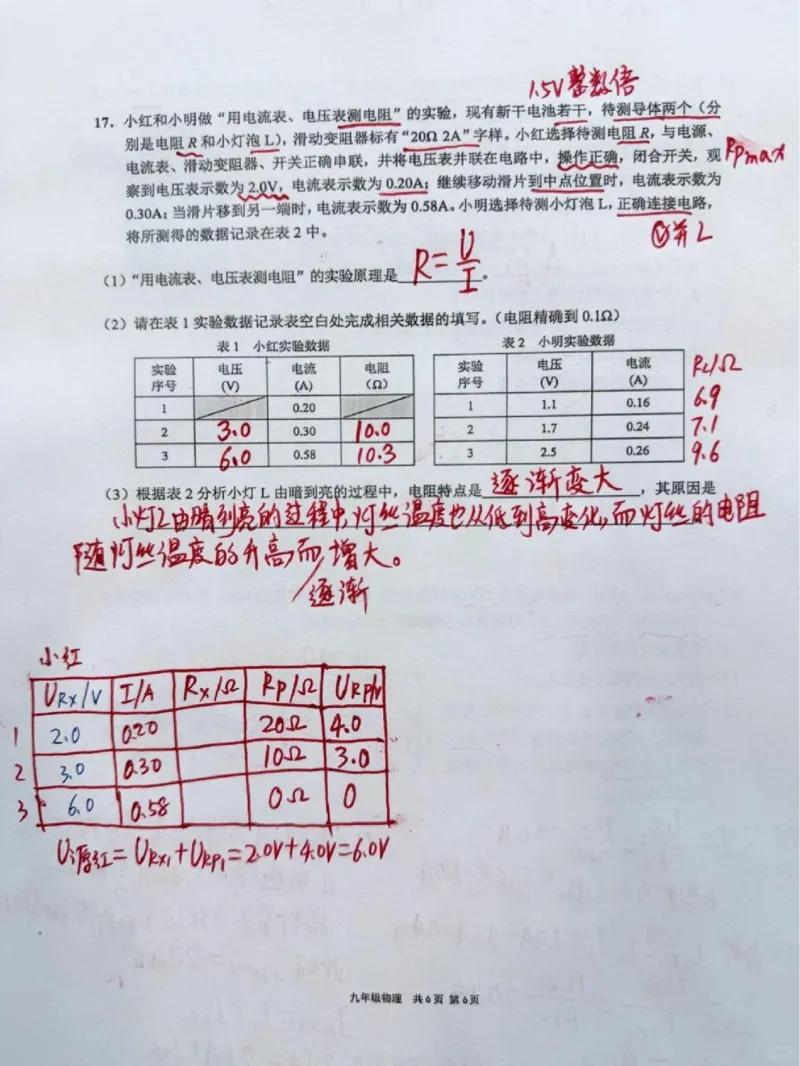 1.5V整数倍
17. 小红和小明做“用电流表、电压表测电阻”的实验，现有新干电池若干，待测导体两个（分
别是电阻 R 和小灯泡 L），滑动变阻器标有“20Ω 2A”字样。小红选择待测电阻 R，与电源、
电流表、滑动变阻器、开关正确串联，并将电压表并联在电路中，操作正确，闭合开关，观
RPmax
察到电压表示数为 2.0V，电流表示数为 0.20A；继续移动滑片到中点位置时，电流表示数为
0.30A；当滑片移到另一端时，电流表示数为 0.58A。小明选择待测小灯泡 L，正确连接电路，
将所测得的数据记录在表 2 中。
Ⓥ并L
（1）“用电流表、电压表测电阻”的实验原理是 R=U/I 。
（2）请在表 1 实验数据记录表空白处完成相关数据的填写。（电阻精确到 0.1Ω）
表 1 小红实验数据 表 2 小明实验数据
实验序号 电压(V) 电流(A) 电阻(Ω) 实验序号 电压(V) 电流(A) RL/Ω
1 0.20 1 1.1 0.16 6.9
2 3.0 0.30 10.0 2 1.7 0.24 7.1
3 6.0 0.58 10.3 3 2.5 0.26 9.6
（3）根据表 2 分析小灯 L 由暗到亮的过程中，电阻特点是 逐渐变大 ，其原因是
小灯L由暗到亮的过程中,灯丝温度也从低到高变化,而灯丝的电阻
随灯丝温度的升高而增大。
逐渐
小红
URx/V I/A Rx/Ω RP/Ω URP/V
1 2.0 0.20 20Ω 4.0
2 3.0 0.30 10Ω 3.0
3 6.0 0.58 0Ω 0
U源红=URx1+URP1=2.0V+4.0V=6.0V
九年级物理 共 6 页 第 6 页